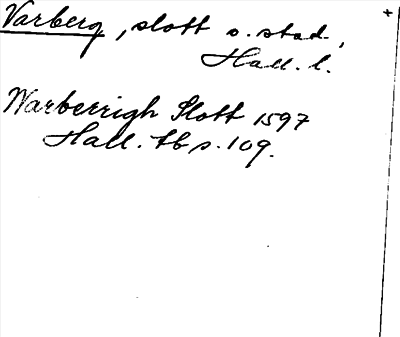 Varberg, slott o. stad,
Hall. l.
Warberrigh Slott 1597
Hall. tb s. 109.